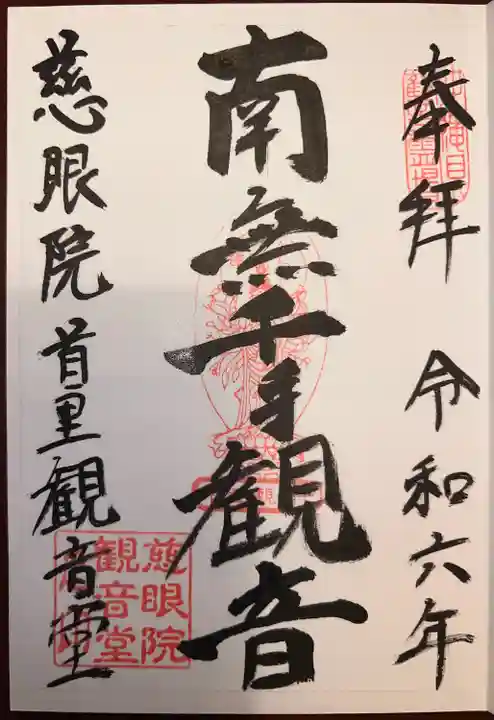 奉拝 令和六年
南無千手観音
慈眼院 首里観音堂
慈眼院
観音堂